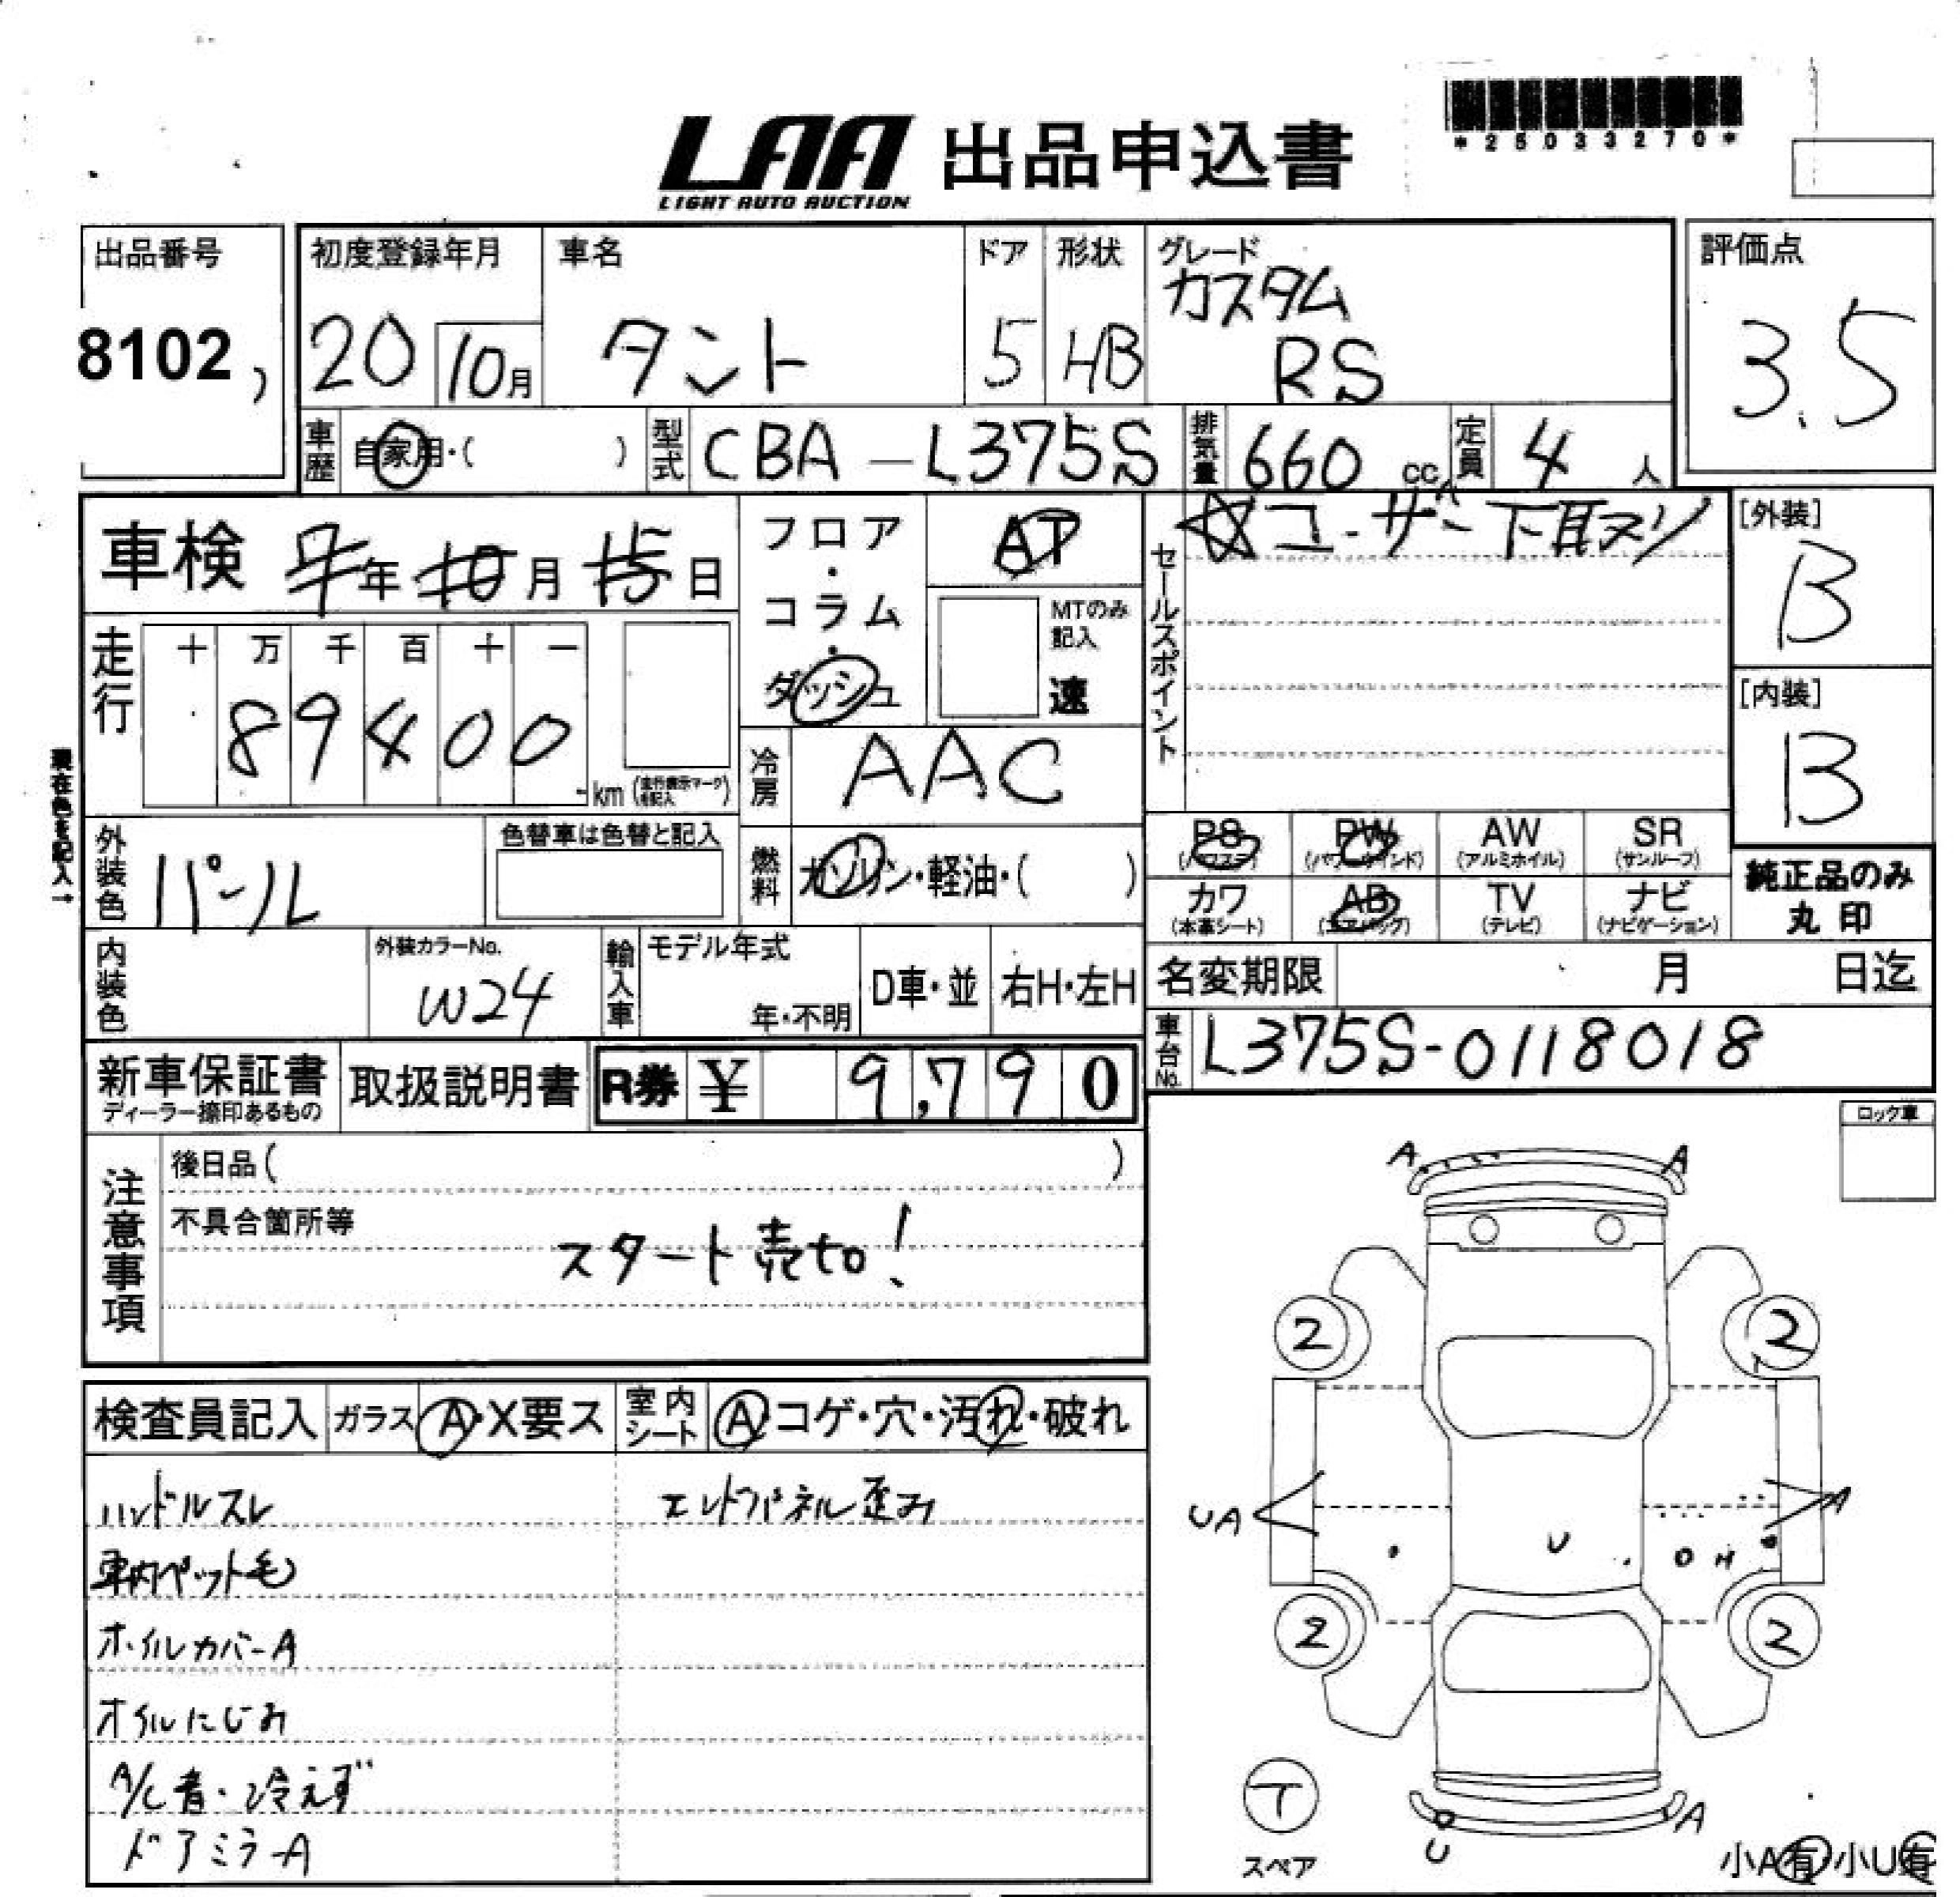 *25033270*
LAA 出品申込書
LIGHT AUTO AUCTION
出品番号
8102
初度登録年月
20 10月
車名
タント
ドア
5
形状
HB
グレード
カスタム
RS
評価点
3.5
車歴 自家用・( )
型式 CBA-L375S
排気量 660 cc
定員 4 人
車検 年 月 日
フロア・コラム・ダッシュ
AT
MTのみ記入
速
セールスポイント
☆ユーザー下取り
[外装]
B
[内装]
B
走行
十 万 千 百 十 一
8 9 4 0 0
km (走行表示マーク を記入)
現在色を記入→
冷房 AAC
外装色 パール
色替車は色替と記入
燃料 ガソリン・軽油・( )
PS (パワステ)
PW (パワーウインド)
AW (アルミホイル)
SR (サンルーフ)
カワ (本革シート)
AB (エアバッグ)
TV (テレビ)
ナビ (ナビゲーション)
純正品のみ
丸印
内装色
外装カラーNo.
W24
輸入車
モデル年式
年・不明
D車・並
右H・左H
名変期限 月 日迄
車台No. L375S-0118018
新車保証書
ディーラー捺印あるもの
取扱説明書
R券 ¥ 9,790
ロック車
注意事項
後日品( )
不具合箇所等
スタート売切!
検査員記入
ガラス A・X要ス
室内シート A・コゲ・穴・汚れ・破れ
ハンドルスレ
エンドパネル歪み
車内ペット毛
ホイルカバーA
オイルにじみ
A/C 音・冷えず
ドアミラーA
A
A
2
2
UA
A
U
2
2
T
スペア
U
A
小A有 小U有